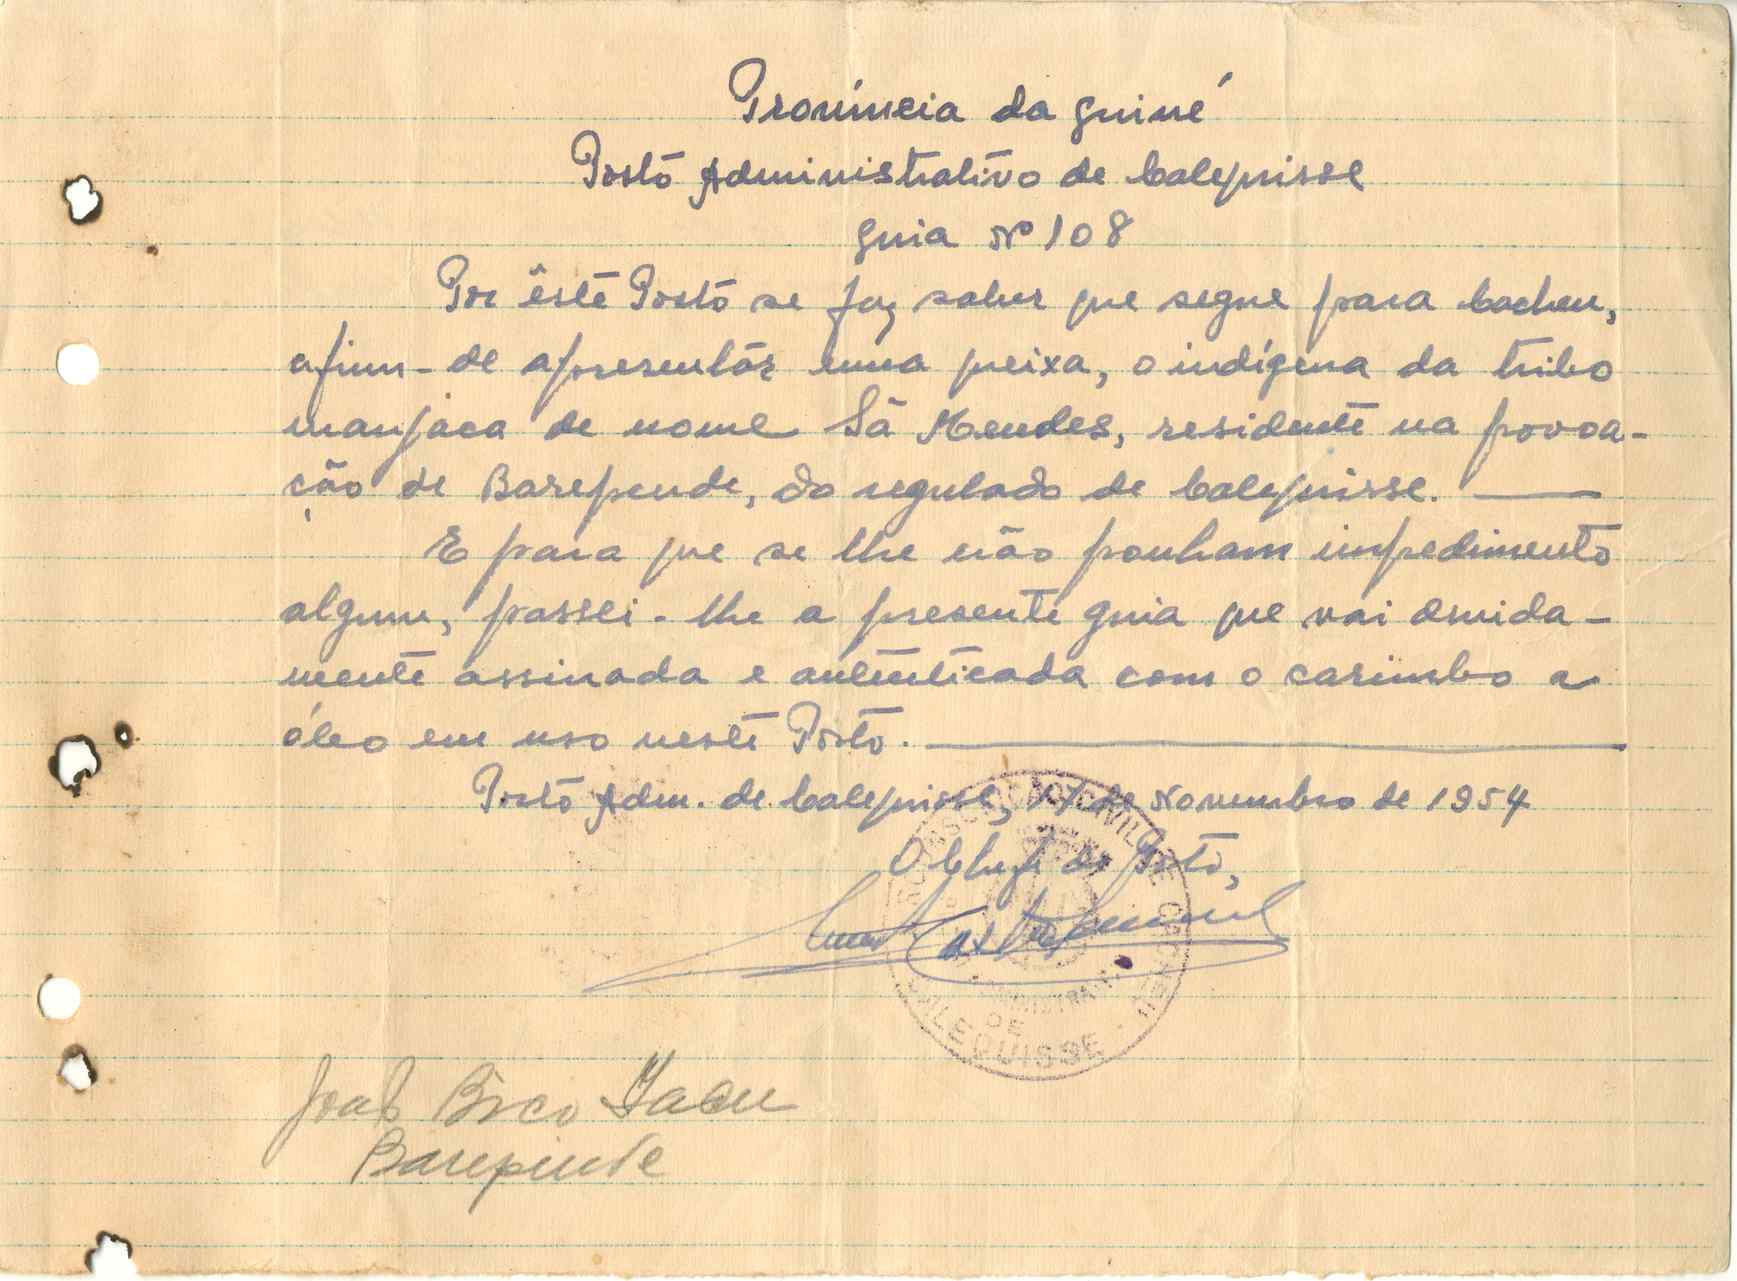 Província da Guiné
Posto Administrativo de Calequisse
Guia Nº 108
Por êste Posto se faz saber que segue para Cacheu,
afim-de apresentar uma queixa, o indígena da tribo
manjaca de nome Sá Mendes, residente na povoa-
ção de Barepende, do regulado de Calequisse.
E para que se lhe não ponham impedimento
algum, passei-lhe a presente guia que vai devida-
mente assinada e autenticada com o carimbo a
óleo em uso neste Posto.
Posto Adm. de Calequisse, 17 de Novembro de 1954
O Chefe do Posto,
CIVIL DE CACHEU
DE
CALEQUISSE
Bico
Barepente